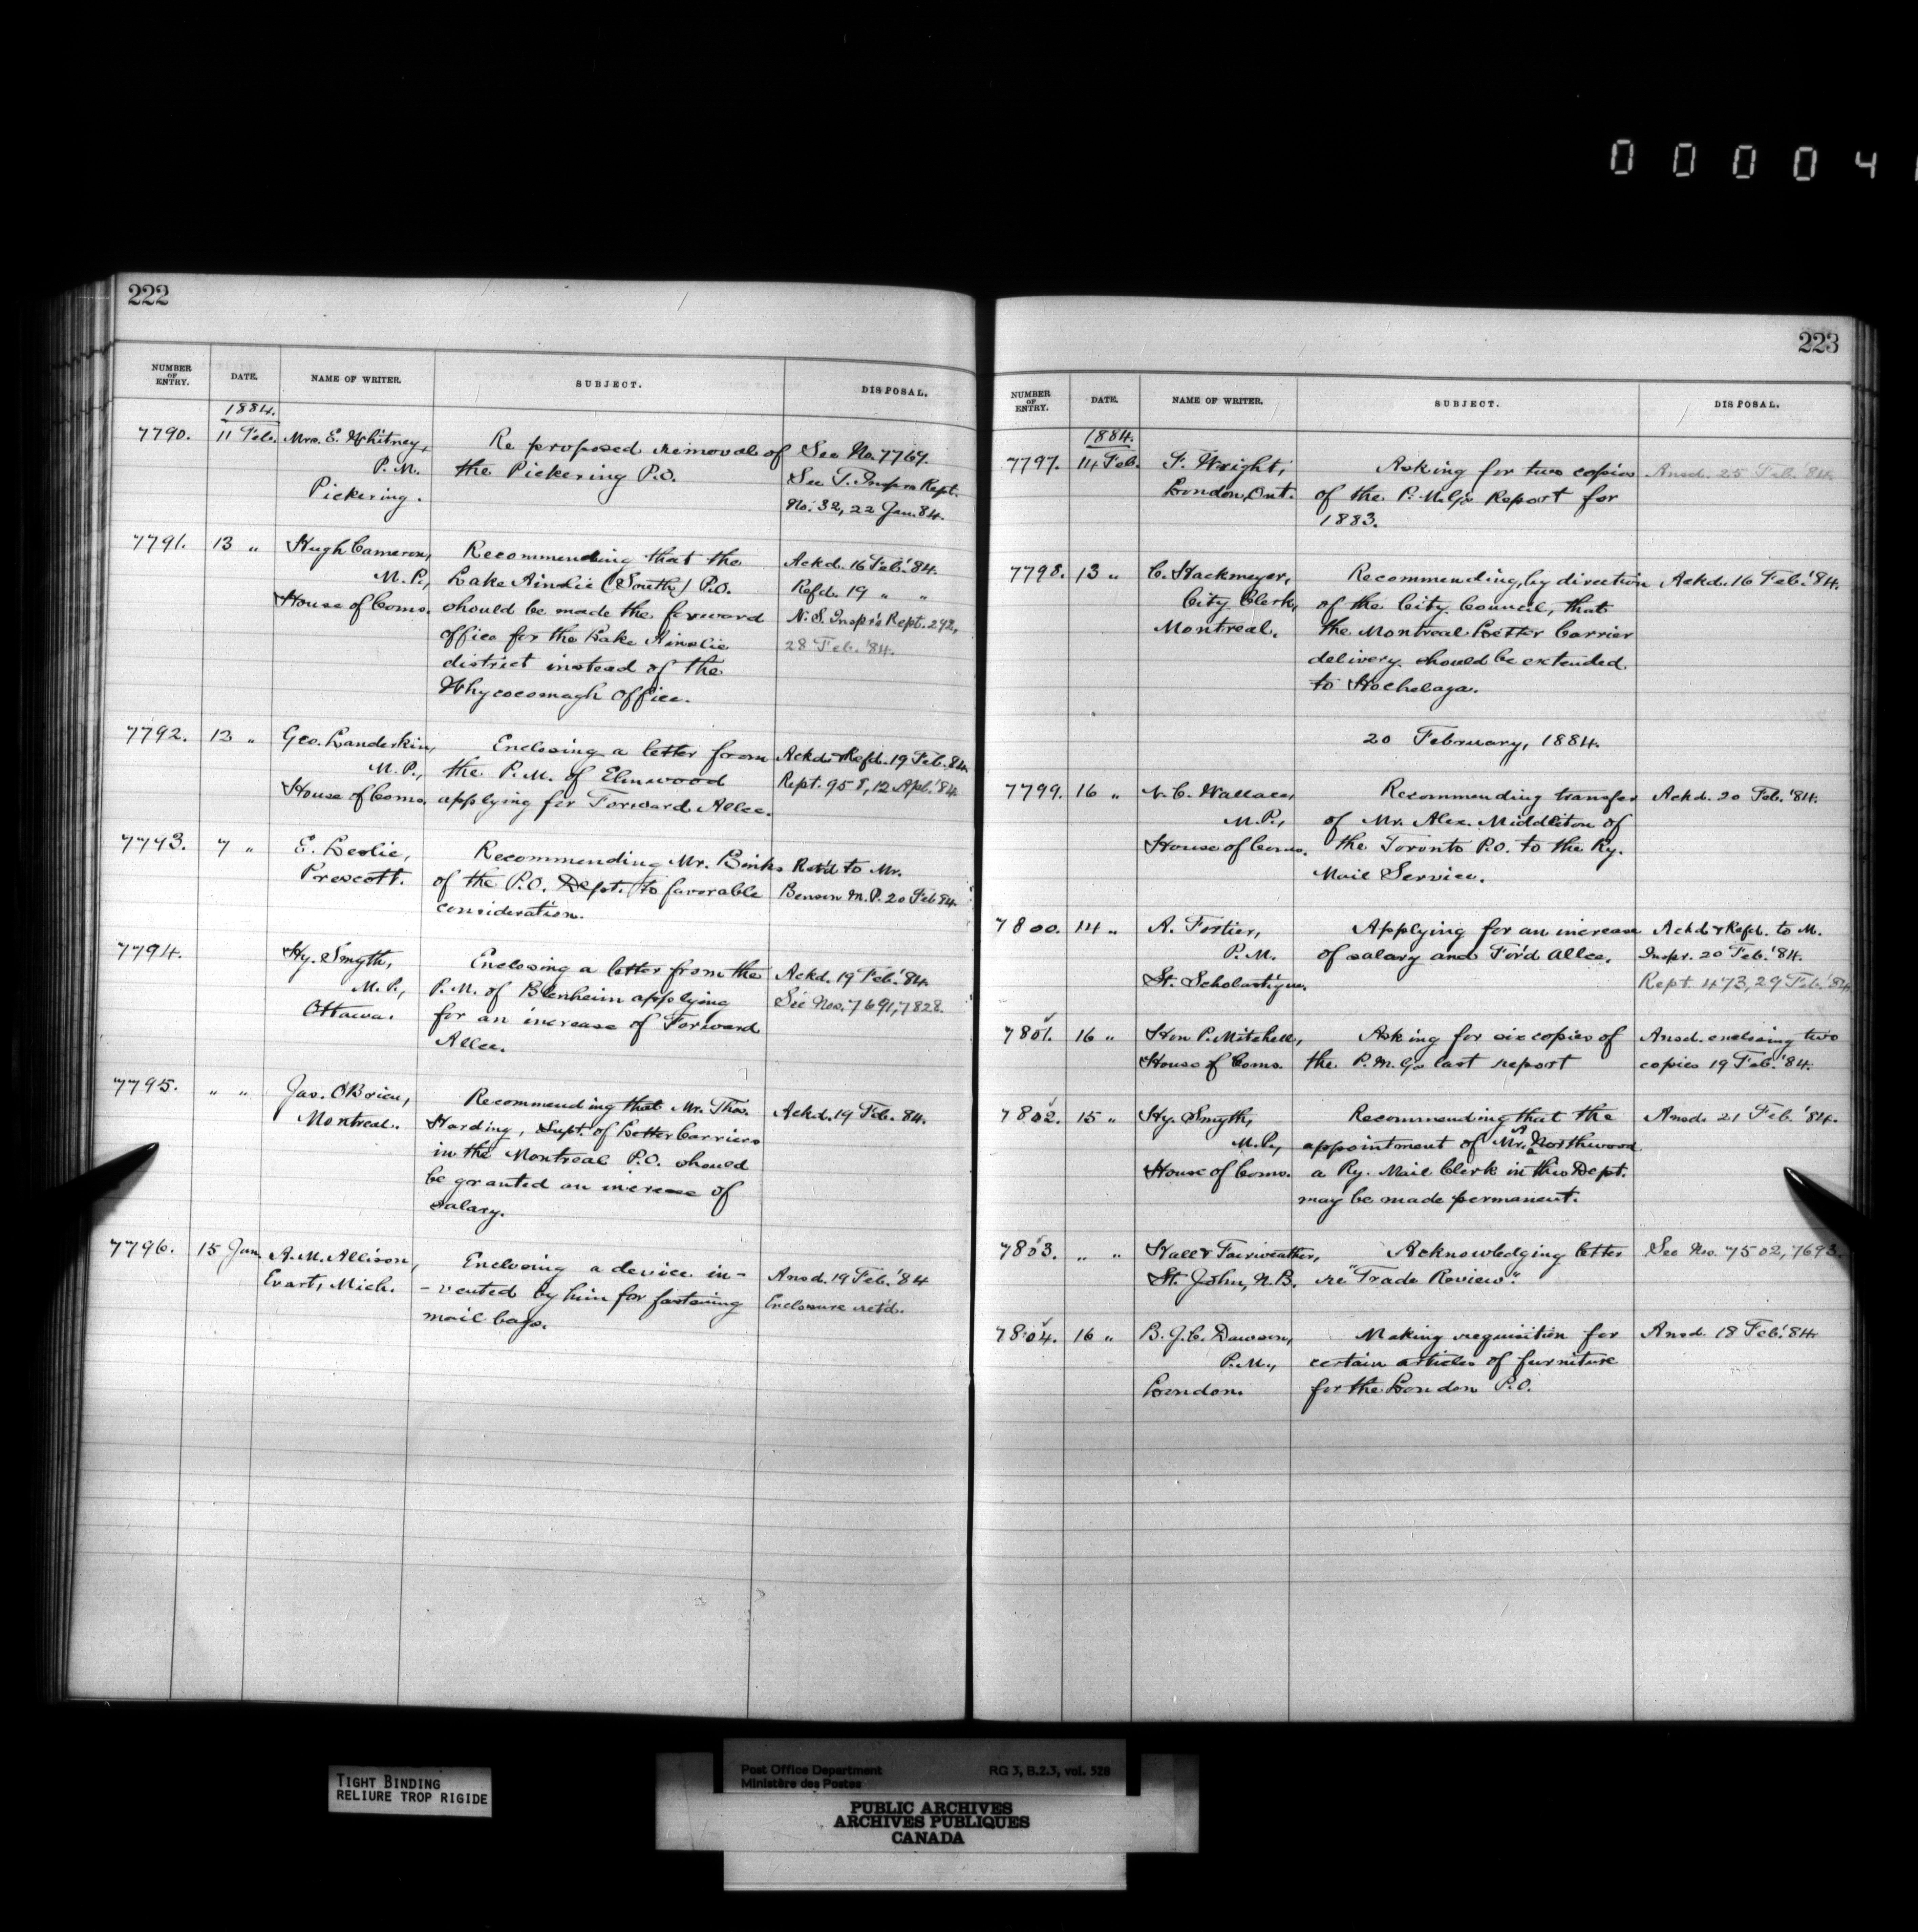 0 0 0 0 4
222
NUMBER OF ENTRY. DATE. NAME OF WRITER. SUBJECT. DISPOSAL.
1884.
7790. 11 Feb. Mrs. E. Whitney, Re proposed removal of See No. 7769.
P.M. the Pickering P.O. See T. Insprs Rept.
Pickering. No. 32, 22 Jan. 84.
7791. 13 „ Hugh Cameron, Recommending that the Ackd. 16 Feb. '84.
M.P., Lake Ainslie (South) P.O. Refd. 19 „ „
House of Coms. should be made the forward N.S. Inspr's Rept. 292,
office for the Lake Ainslie 28 Feb. '84.
district instead of the
Whycocomagh Office.
7792. 13 „ Geo. Landerkin, Enclosing a letter from Ackd. & Refd. 19 Feb. 84.
M.P., the P.M. of Elmwood Rept. 958, 12 Apl. '84.
House of Coms. applying for Forward Allce.
7793. 7 „ E. Leslie, Recommending Mr. Binks Retd to Mr.
Prescott. of the P.O. Dept. to favorable Benson M.P. 20 Feb 84.
consideration.
7794. Hy. Smyth, Enclosing a letter from the Ackd. 19 Feb. '84.
M.P., P.M. of Blenheim applying See Nos. 7691, 7828.
Ottawa. for an increase of Forward
Allce.
7795. „ „ Jas. O'Brien, Recommending that Mr. Thos. Ackd. 19 Feb. 84.
Montreal. Harding, Supt. of Letter Carriers
in the Montreal P.O. should
be granted an increase of
salary.
7796. 15 Jan. A. M. Allison, Enclosing a device in- Ansd. 19 Feb. '84
Evart, Mich. -vented by him for fastening Enclosure ret'd.
mail bags.
223
NUMBER OF ENTRY. DATE. NAME OF WRITER. SUBJECT. DISPOSAL.
1884.
7797. 14 Feb. F. Wright, Asking for two copies Ansd. 25 Feb. '84.
London, Ont. of the P.M.G's Report for
1883.
7798. 13 „ C. Hackmeyer, Recommending, by direction Ackd. 16 Feb. '84.
City Clerk, of the City Council, that
Montreal. the Montreal Letter Carrier
delivery should be extended
to Hochelaga.
20 February, 1884.
7799. 16 „ N. C. Wallace, Recommending transfer Ackd. 20 Feb. '84.
M.P., of Mr. Alex. Middleton of
House of Coms. the Toronto P.O. to the Ry.
Mail Service.
7800. 14 „ A. Fortier, Applying for an increase Ackd & Refd. to M.
P.M. of salary and For'd Allce. Inspr. 20 Feb. '84.
St. Scholastique. Rept. 473, 29 Feb. '84
7801. 16 „ Hon P. Mitchell, Asking for six copies of Ansd. enclosing two
House of Coms. the P.M.G's last report copies 19 Feb. '84.
7802. 15 „ Hy. Smyth, Recommending that the Ansd. 21 Feb. '84.
M.P., appointment of Mr. A Northwood
House of Coms. a Ry. Mail Clerk in this Dept.
may be made permanent.
7803. „ „ Hall & Fairweather, Acknowledging letter See No. 7502, 7693.
St. John, N.B. re "Trade Review".
7804. 16 „ B. J. C. Dawson, Making requisition for Ansd. 18 Feb. '84
P.M., certain articles of furniture
London. for the London P.O.
TIGHT BINDING
RELIURE TROP RIGIDE
Post Office Department RG 3, B.2.3, vol. 528
Ministère des Postes
PUBLIC ARCHIVES
ARCHIVES PUBLIQUES
CANADA